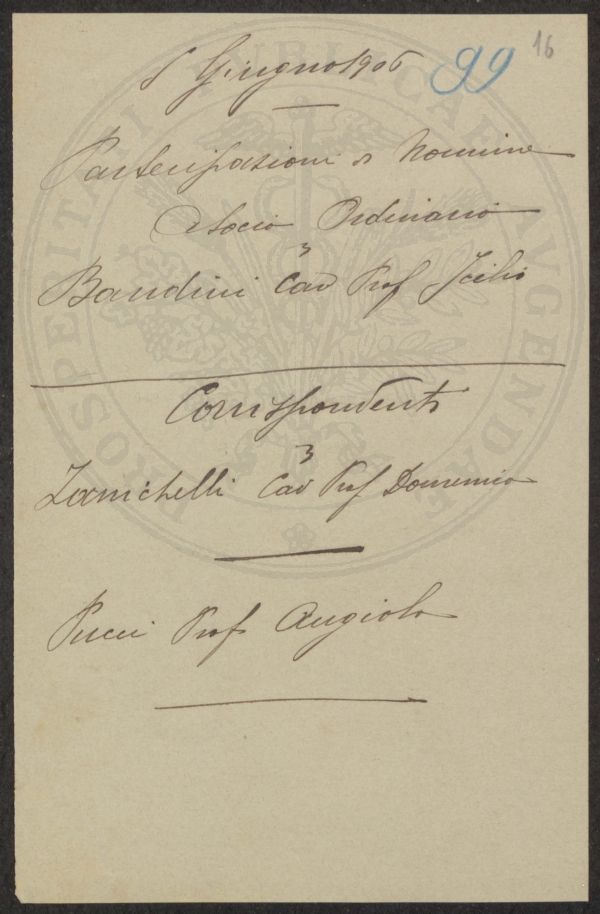 Giugno 1906 99 16
Partecipazioni di Nomine
a Socio Ordinario
3
Bandini Cav Prof Icilio
Corrispondenti
3
Zanichelli Cav Prof Domenico
Pucci Prof Angiolo
PROSPERITATI PUBLICAE AVGENDAE